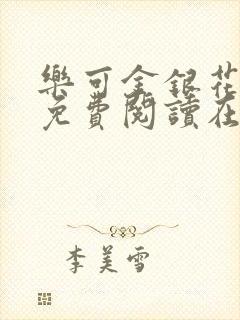 樂可金銀花
免費閱讀在
李美雪